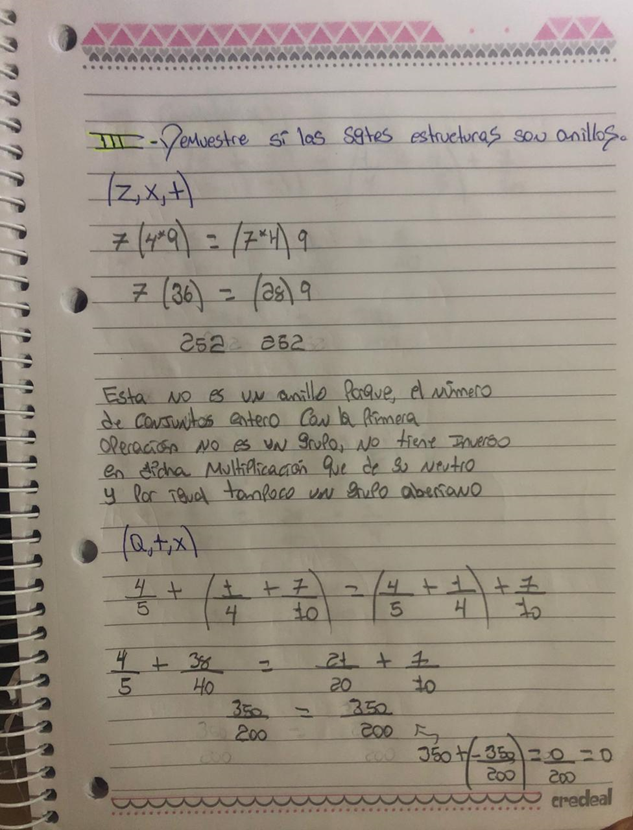 III - Demuestre si las sgtes estructuras son anillos.
(Z, x, +)
7 (4*9) = (7*4) 9
7 (36) = (28) 9
252 252
Esta no es un anillo Porque, el número
de conjuntos entero con la Primera
operación no es un grupo, no tiene Inverso
en dicha Multiplicación que de su Neutro
y Por igual tampoco un grupo abeliano
(Q, +, x)
4/5 + (1/4 + 7/10) = (4/5 + 1/4) + 7/10
4/5 + 38/40 = 21/20 + 7/10
350/200 = 350/200
350 + (-350/200) = 0/200 = 0
credeal